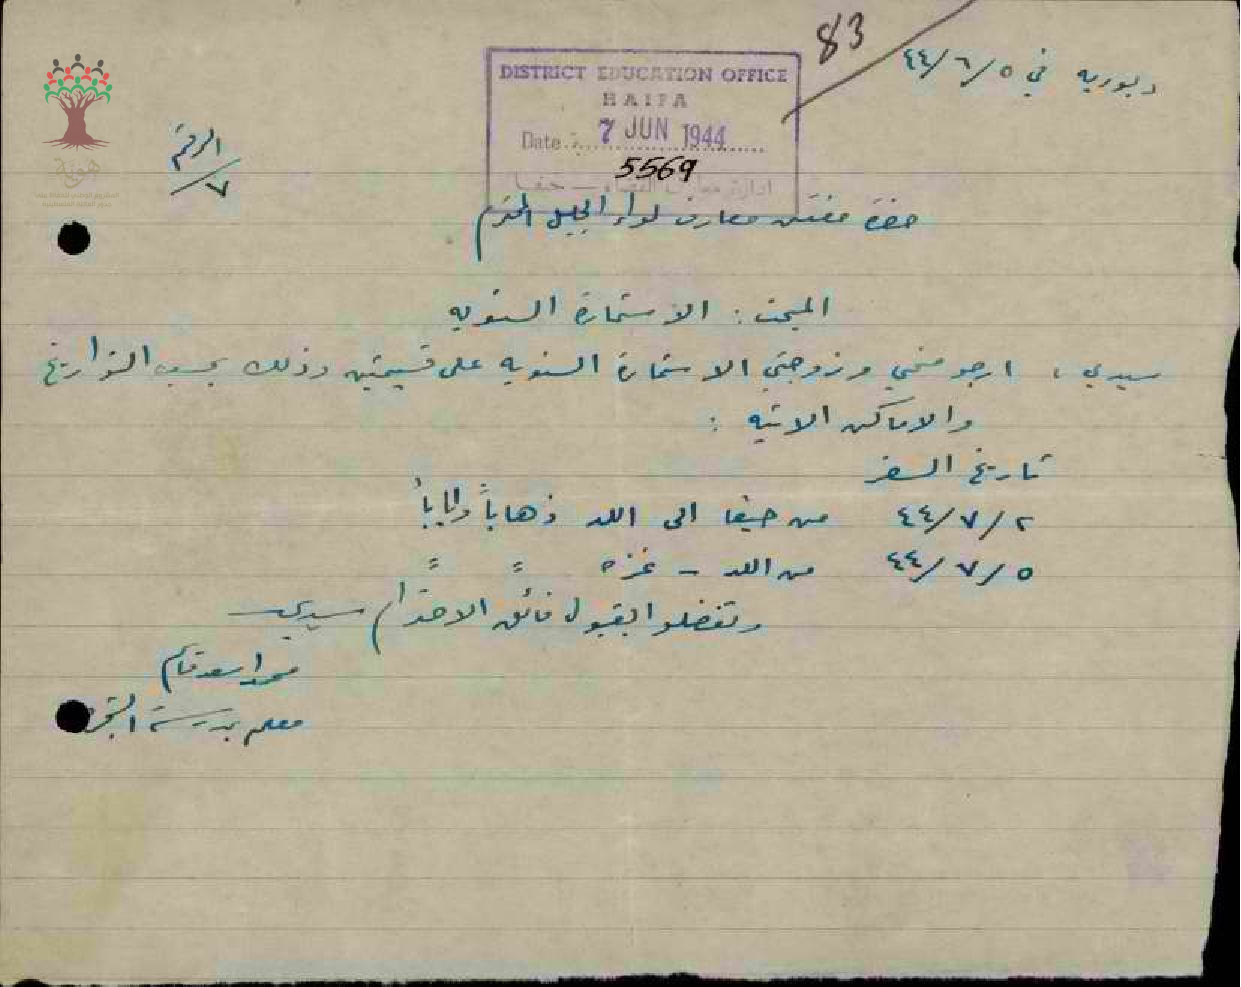 83
دبوريه في ٥/٦/٤٤
DISTRICT EDUCATION OFFICE
HAIFA
Date 7 JUN 1944
5569
ادارة معارف القضاء – حيفا
الرقم
٧
هوية
حضرة مفتش معارف لواء الجليل المحترم
المبحث : الاستمارة السنويه
سيدي ، ارجو منحي وزوجتي الاستمارة السنويه على قسيمتين وذلك بحسب التواريخ
والاماكن الاتيه :
تاريخ السفر
٢/٧/٤٤ من حيفا الى اللد ذهاباً واياباً
٥/٧/٤٤ من اللد – غزه " "
وتفضلوا بقبول فائق الاحترام سيدي
محمد اسعد قاسم
معلم بمدرسة الشجرة